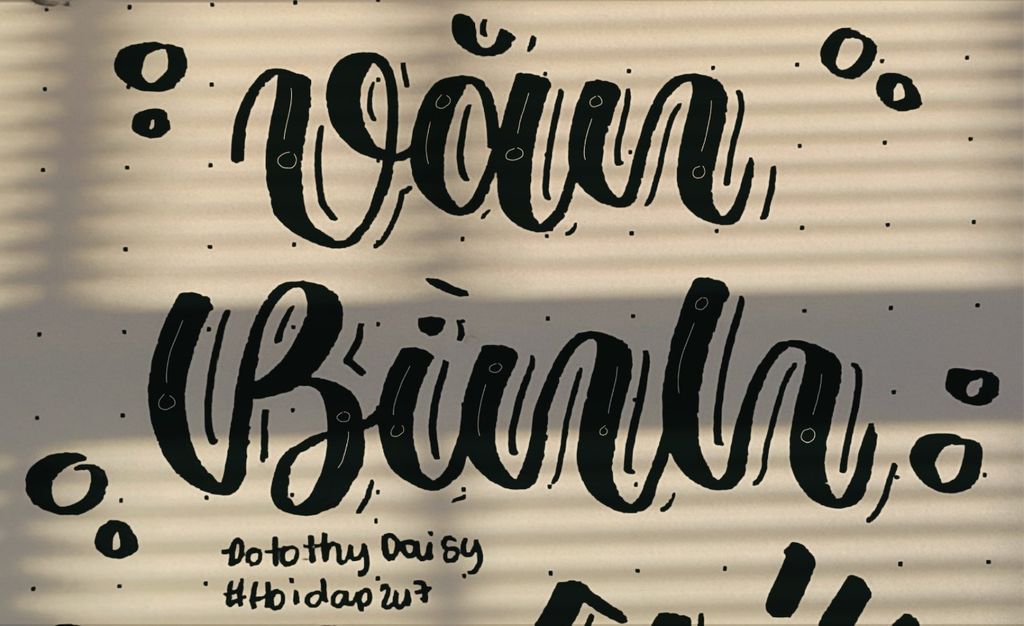 Văn
Bình
Dotothy Daisy
#Hoidap247